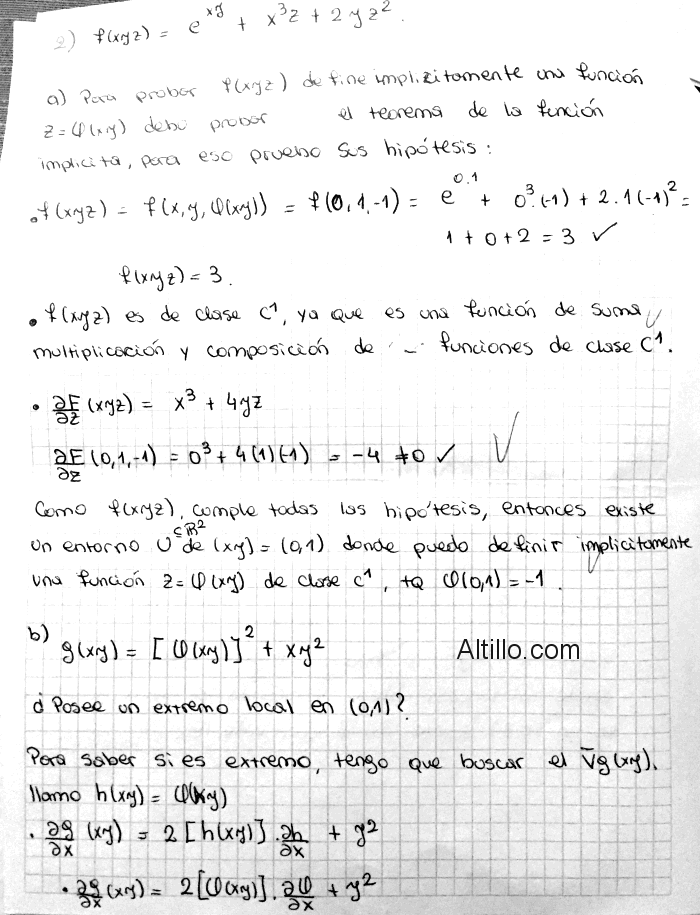 2) f(xyz) = e^xy + x³z + 2yz².
a) Para probar f(xyz) define implizitamente una función
z = φ(xy) debo probar el teorema de la función
implicita, para eso pruebo sus hipótesis:
• f(xyz) = f(x, y, φ(xy)) = f(0, 1, -1) = e^0.1 + 0³.(-1) + 2.1(-1)² =
1 + 0 + 2 = 3 ✓
f(xyz) = 3.
• f(xyz) es de clase C¹, ya que es una función de suma
multiplicación y composición de funciones de clase C¹.
• ∂F/∂z (xyz) = x³ + 4yz
∂F/∂z (0,1,-1) = 0³ + 4(1)(-1) = -4 ≠ 0 ✓
Como f(xyz), cumple todas las hipótesis, entonces existe
un entorno U ⊆ℝ² de (xy) = (0,1) donde puedo definir implicitamente
una función z = φ(xy) de clase C¹, tq φ(0,1) = -1.
b) g(xy) = [φ(xy)]² + xy²
Altillo.com
¿ Posee un extremo local en (0,1)?
Para saber si es extremo, tengo que buscar el ∇g(xy).
llamo h(xy) = φ(xy)
• ∂g/∂x (xy) = 2[h(xy)].∂h/∂x + y²
• ∂g/∂x (xy) = 2[φ(xy)].∂φ/∂x + y²